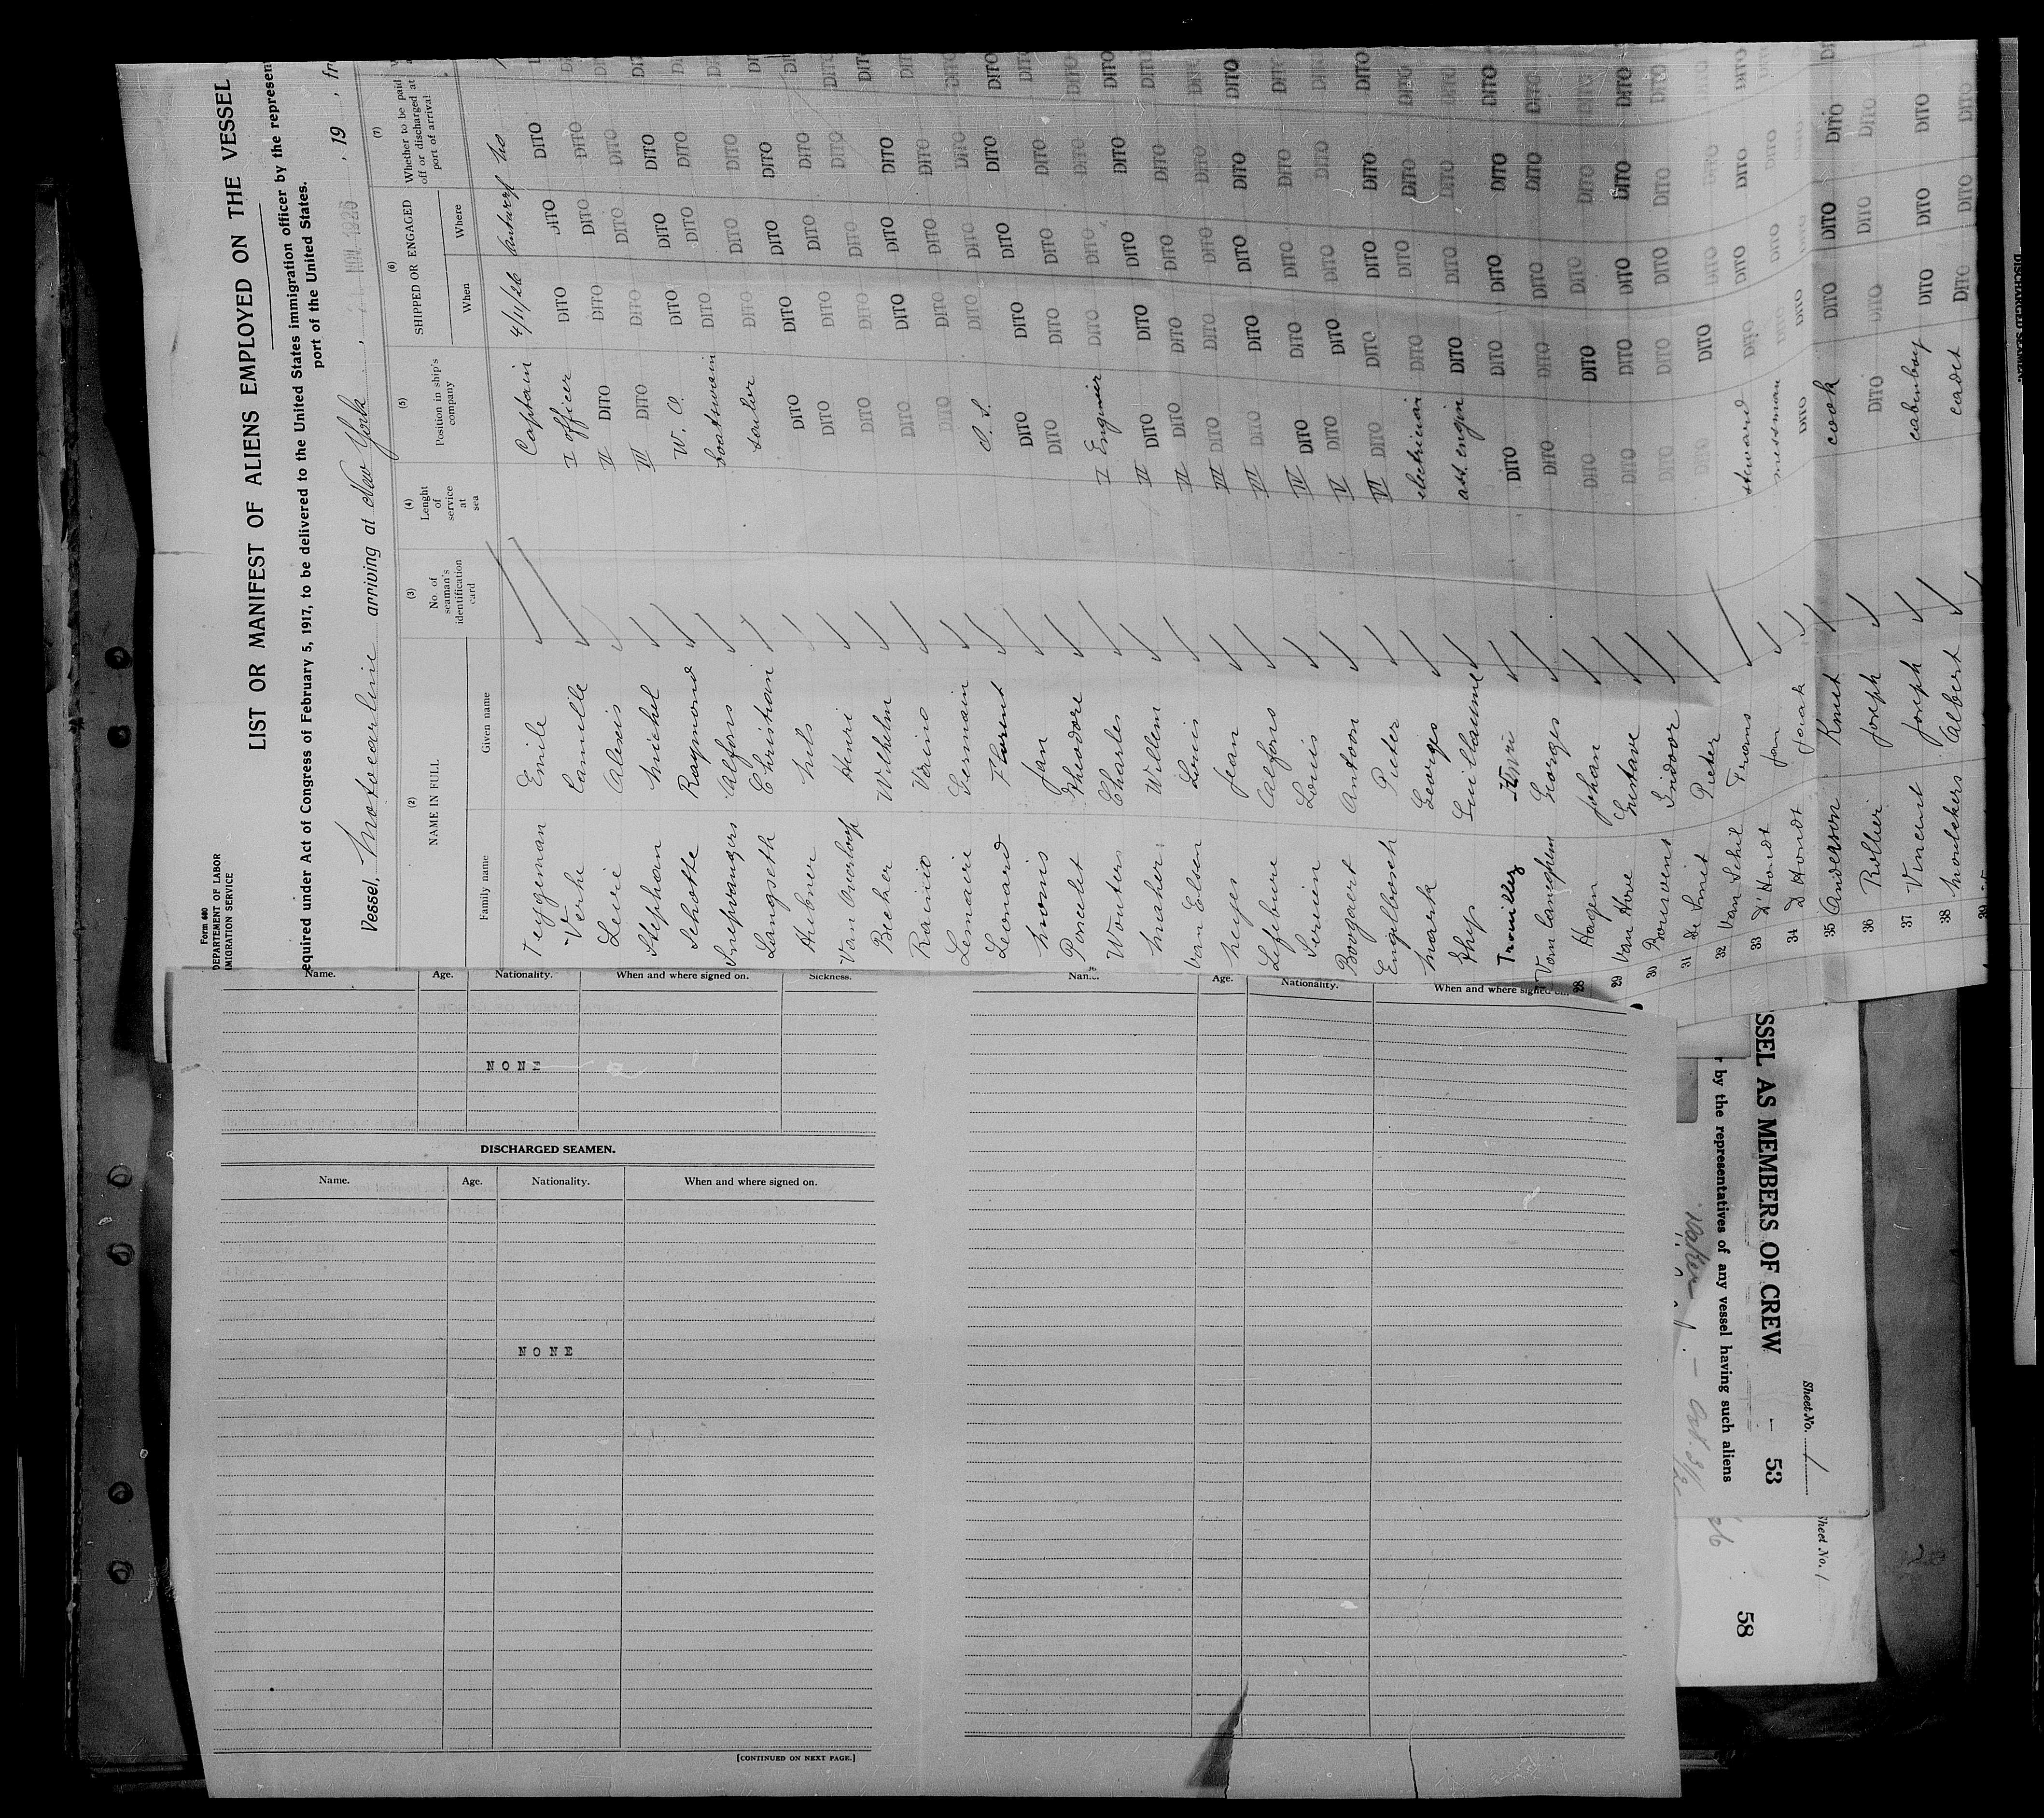 Form 680
DEPARTEMENT OF LABOR
IMMIGRATION SERVICE
LIST OR MANIFEST OF ALIENS EMPLOYED ON THE VESSEL
equired under Act of Congress of February 5, 1917, to be delivered to the United States immigration officer by the represen
port of the United States.
Vessel, Motocarline arriving at New York, NOV. 1926, 19 , fr
(2) NAME IN FULL
(3) No. of seaman's identification card
(4) Lenght of service at sea
(5) Position in ship's company
(6) SHIPPED OR ENGAGED
(7) Whether to be paid off or discharged at port of arrival
Family name Given name When Where
Teygeman Emile Captain 4/11/26 Antwerp No
Verhe Camille I officer DITO DITO DITO
Alexis II DITO DITO DITO DITO
Stephan Michel III DITO DITO DITO DITO
Schotte Raymond W. O. DITO DITO DITO
Alfons boatswain DITO DITO DITO
Langseth Christian sailor DITO DITO DITO
Hubner Nils DITO DITO DITO DITO
Van Overloop Henri DITO DITO DITO DITO
Becher Wilhelm DITO DITO DITO DITO
DITO DITO DITO DITO
Lemaire Germain DITO DITO DITO DITO
Leonard Florent O. S. DITO DITO DITO
Jan DITO DITO DITO DITO
Poncelet Theodore DITO DITO DITO DITO
Wouters Charles I Engineer DITO DITO DITO
Maher Willem II DITO DITO DITO DITO
Van Elsen Louis II DITO DITO DITO DITO
Neyes Jean III DITO DITO DITO DITO
Lefebure Alfons III DITO DITO DITO DITO
Louis IV DITO DITO DITO DITO
Boogaert Antoon V DITO DITO DITO DITO
Engelbosch Pieter VI DITO DITO DITO DITO
Mark Georges electricien DITO DITO DITO
Thys Guillaume ass. engin DITO DITO DITO
Trouillez Henri DITO DITO DITO DITO
Van Langenhem Georges DITO DITO DITO DITO
28 Haagen Johan DITO DITO DITO DITO
29 Van Hove Gustave DITO DITO DITO DITO
30 Isidoor DITO DITO DITO DITO
31 De Smet Pieter DITO DITO DITO DITO
32 Van Schil Frans steward DITO DITO DITO
33 D'Hondt Jan messman DITO DITO DITO
34 D'Hondt DITO DITO DITO DITO
35 Anderson Knut cook DITO DITO DITO
36 Rollier Joseph DITO DITO DITO DITO
37 Vincent Joseph cabenboy DITO DITO DITO
38 Moulckers Albert cadet DITO DITO DITO
39
Name. Age. Nationality. When and where signed on. Sickness.
NONE
DISCHARGED SEAMEN.
Name. Age. Nationality. When and where signed on.
NONE
[CONTINUED ON NEXT PAGE.]
Name. Age. Nationality. When and where signed on.
SSEL AS MEMBERS OF CREW – 53
Sheet No. 1
by the representatives of any vessel having such aliens
Sheet No. 1
58
DISCHARGED SEAMEN.